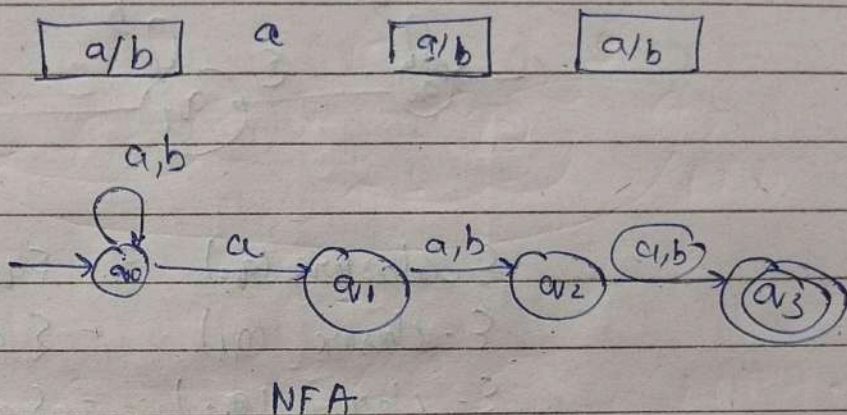 a/b a a/b a/b
a,b
q0 a q1 a,b q2 a,b q3
NFA